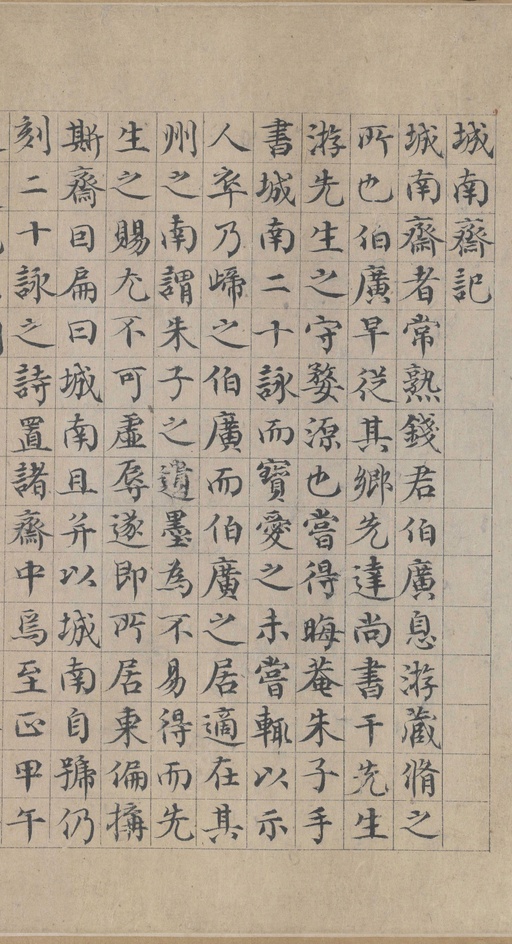 城南齋記
城南齋者常熟錢君伯廣息游藏脩之
所也伯廣早從其鄉先達尚書干先生
游先生之守婺源也嘗得晦菴朱子手
書城南二十詠而寶愛之未嘗輒以示
人卒乃歸之伯廣而伯廣之居適在其
州之南謂朱子之遺墨為不易得而先
生之賜尤不可虛辱遂即所居東偏搆
斯齋曰扁曰城南且并以城南自號仍
刻二十詠之詩置諸齋中焉至正甲午